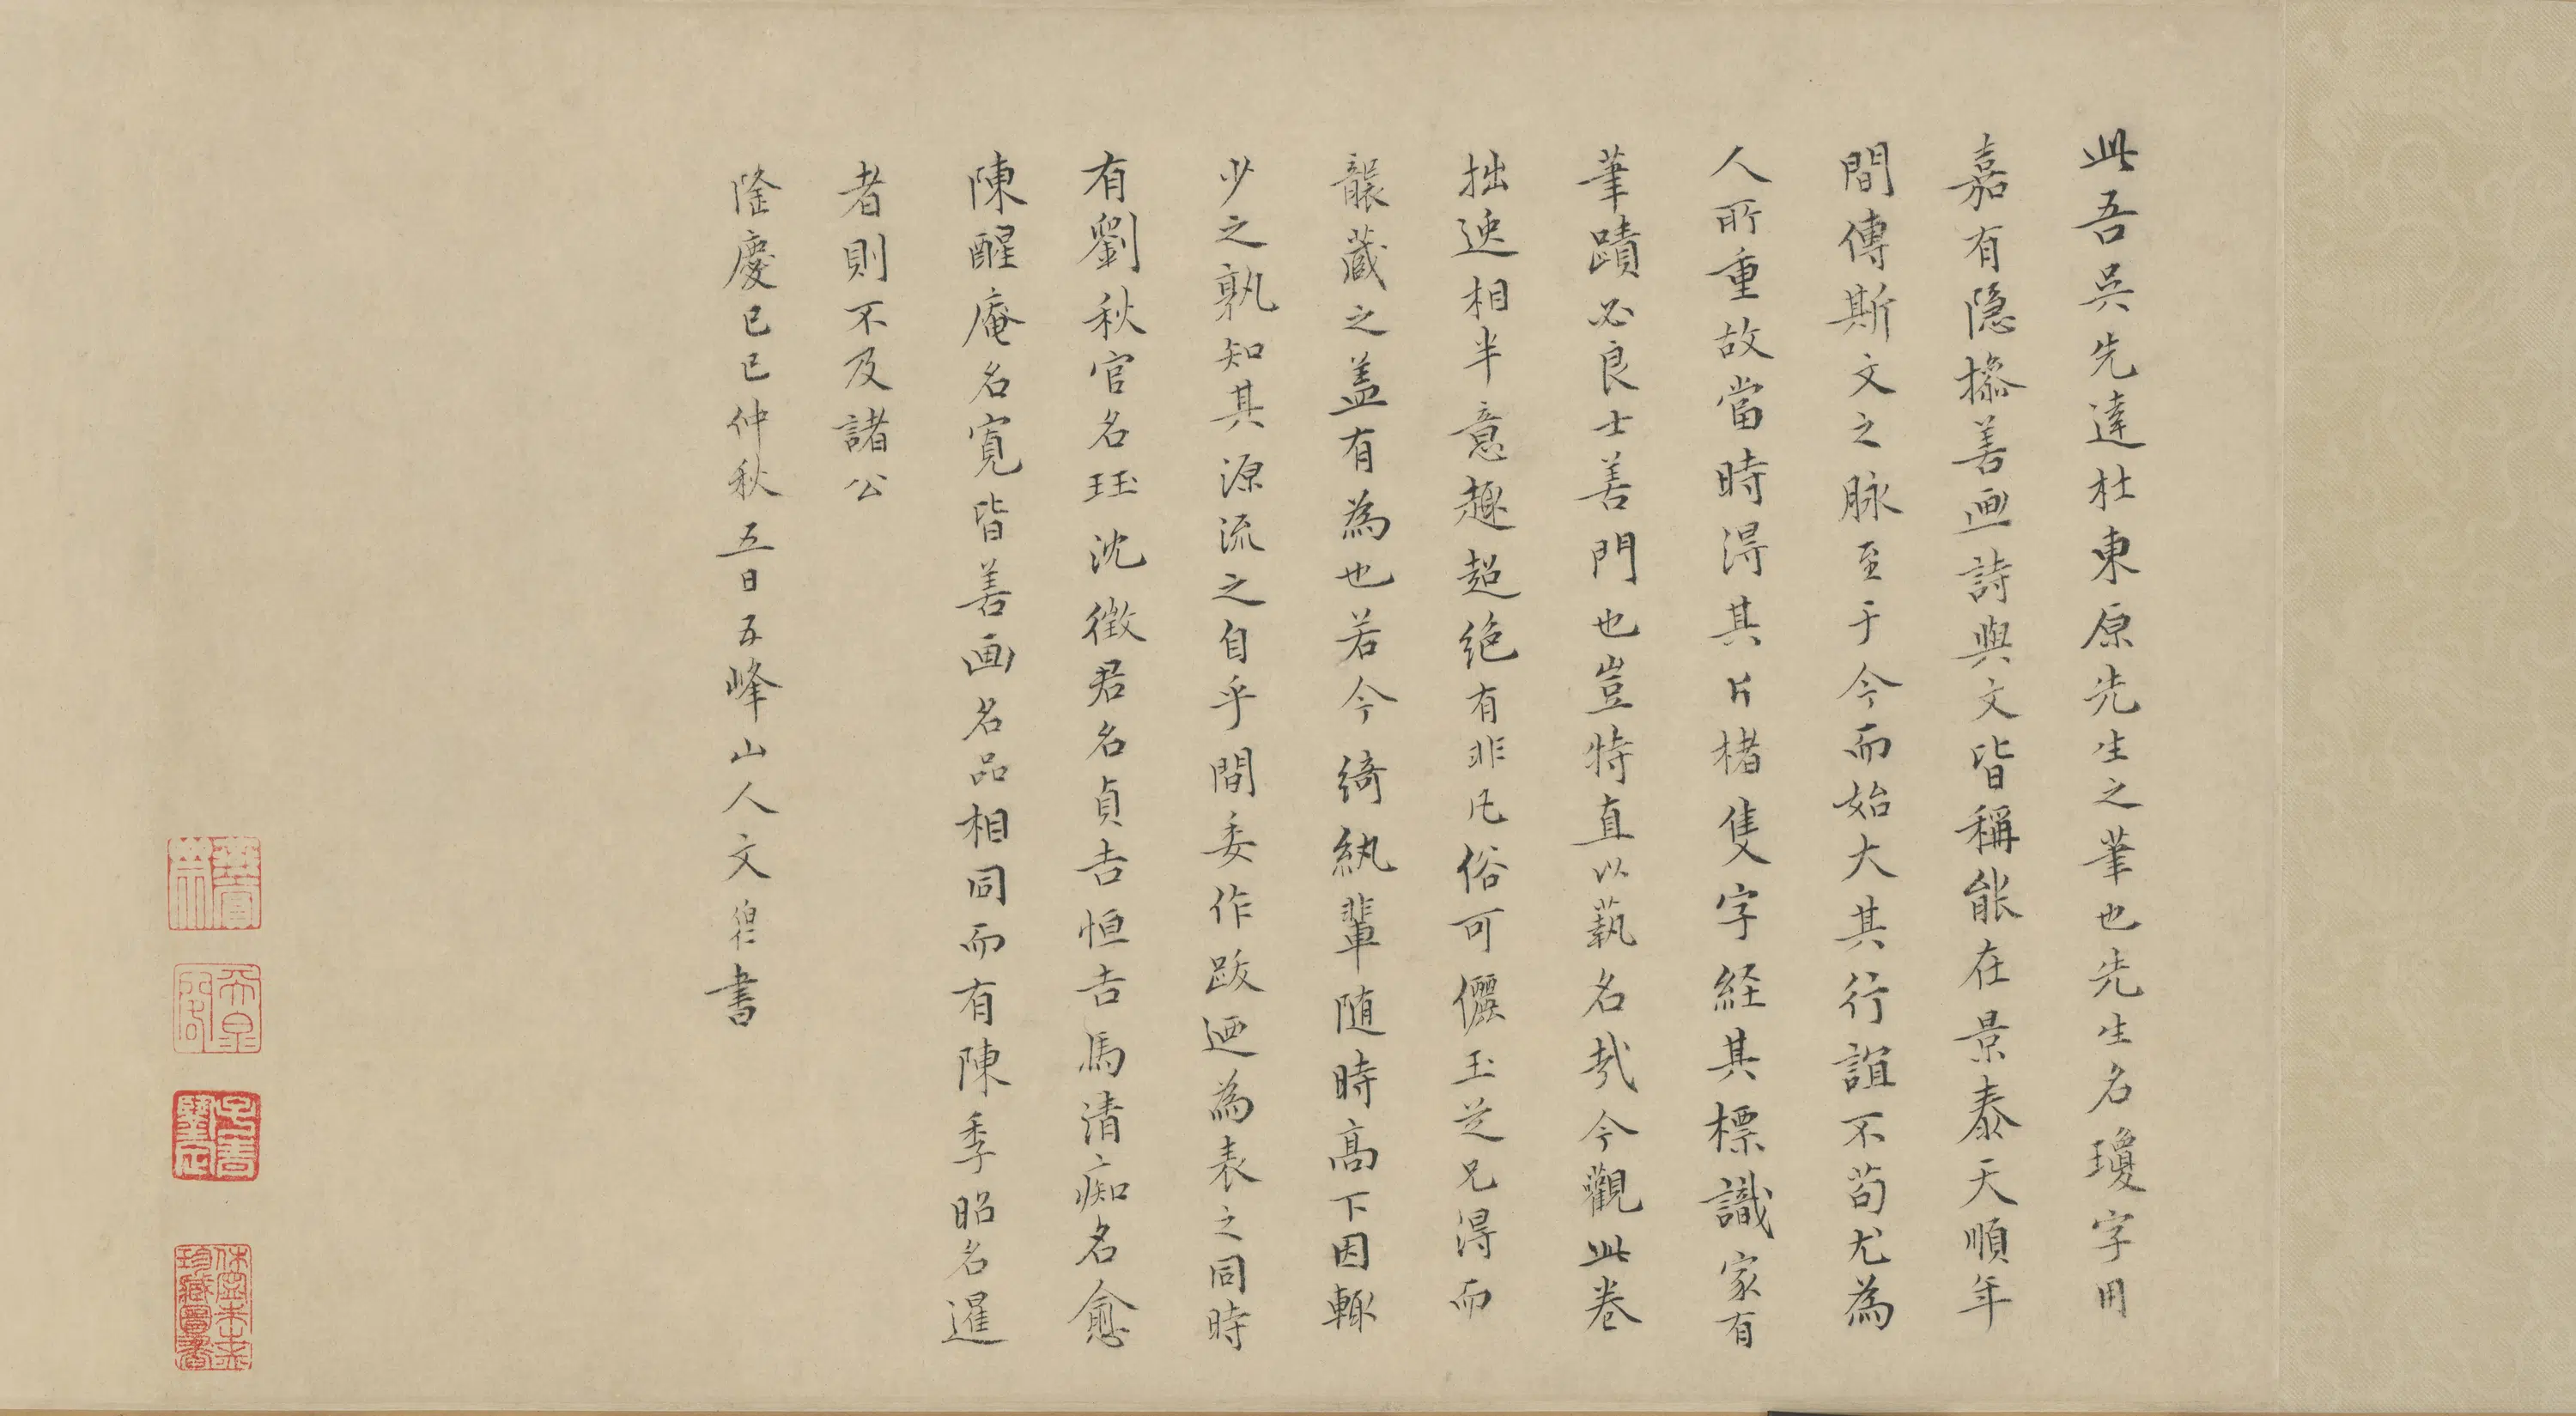 此吾吳先達杜東原先生之筆也先生名瓊字用
嘉有隱操善画詩與文皆稱能在景泰天順年
間傳斯文之脉至于今而始大其行誼不苟尤為
人所重故當時得其片楮隻字経其標識家有
筆蹟必良士善門也豈特直以藝名哉今觀此卷
拙逸相半意趣超絶有非凡俗可儷玉芝兄得而
襲藏之盖有為也若今綺紈輩随時高下因輙
少之孰知其源流之自乎間委作跋迺為表之同時
有劉秋官名珏沈徵君名貞吉恒吉馬清痴名愈
陳醒庵名寛皆善画名品相同而有陳季昭名暹
者則不及諸公
隆慶己巳仲秋五日五峰山人文伯仁書
子孫鑒定
珍藏圖書